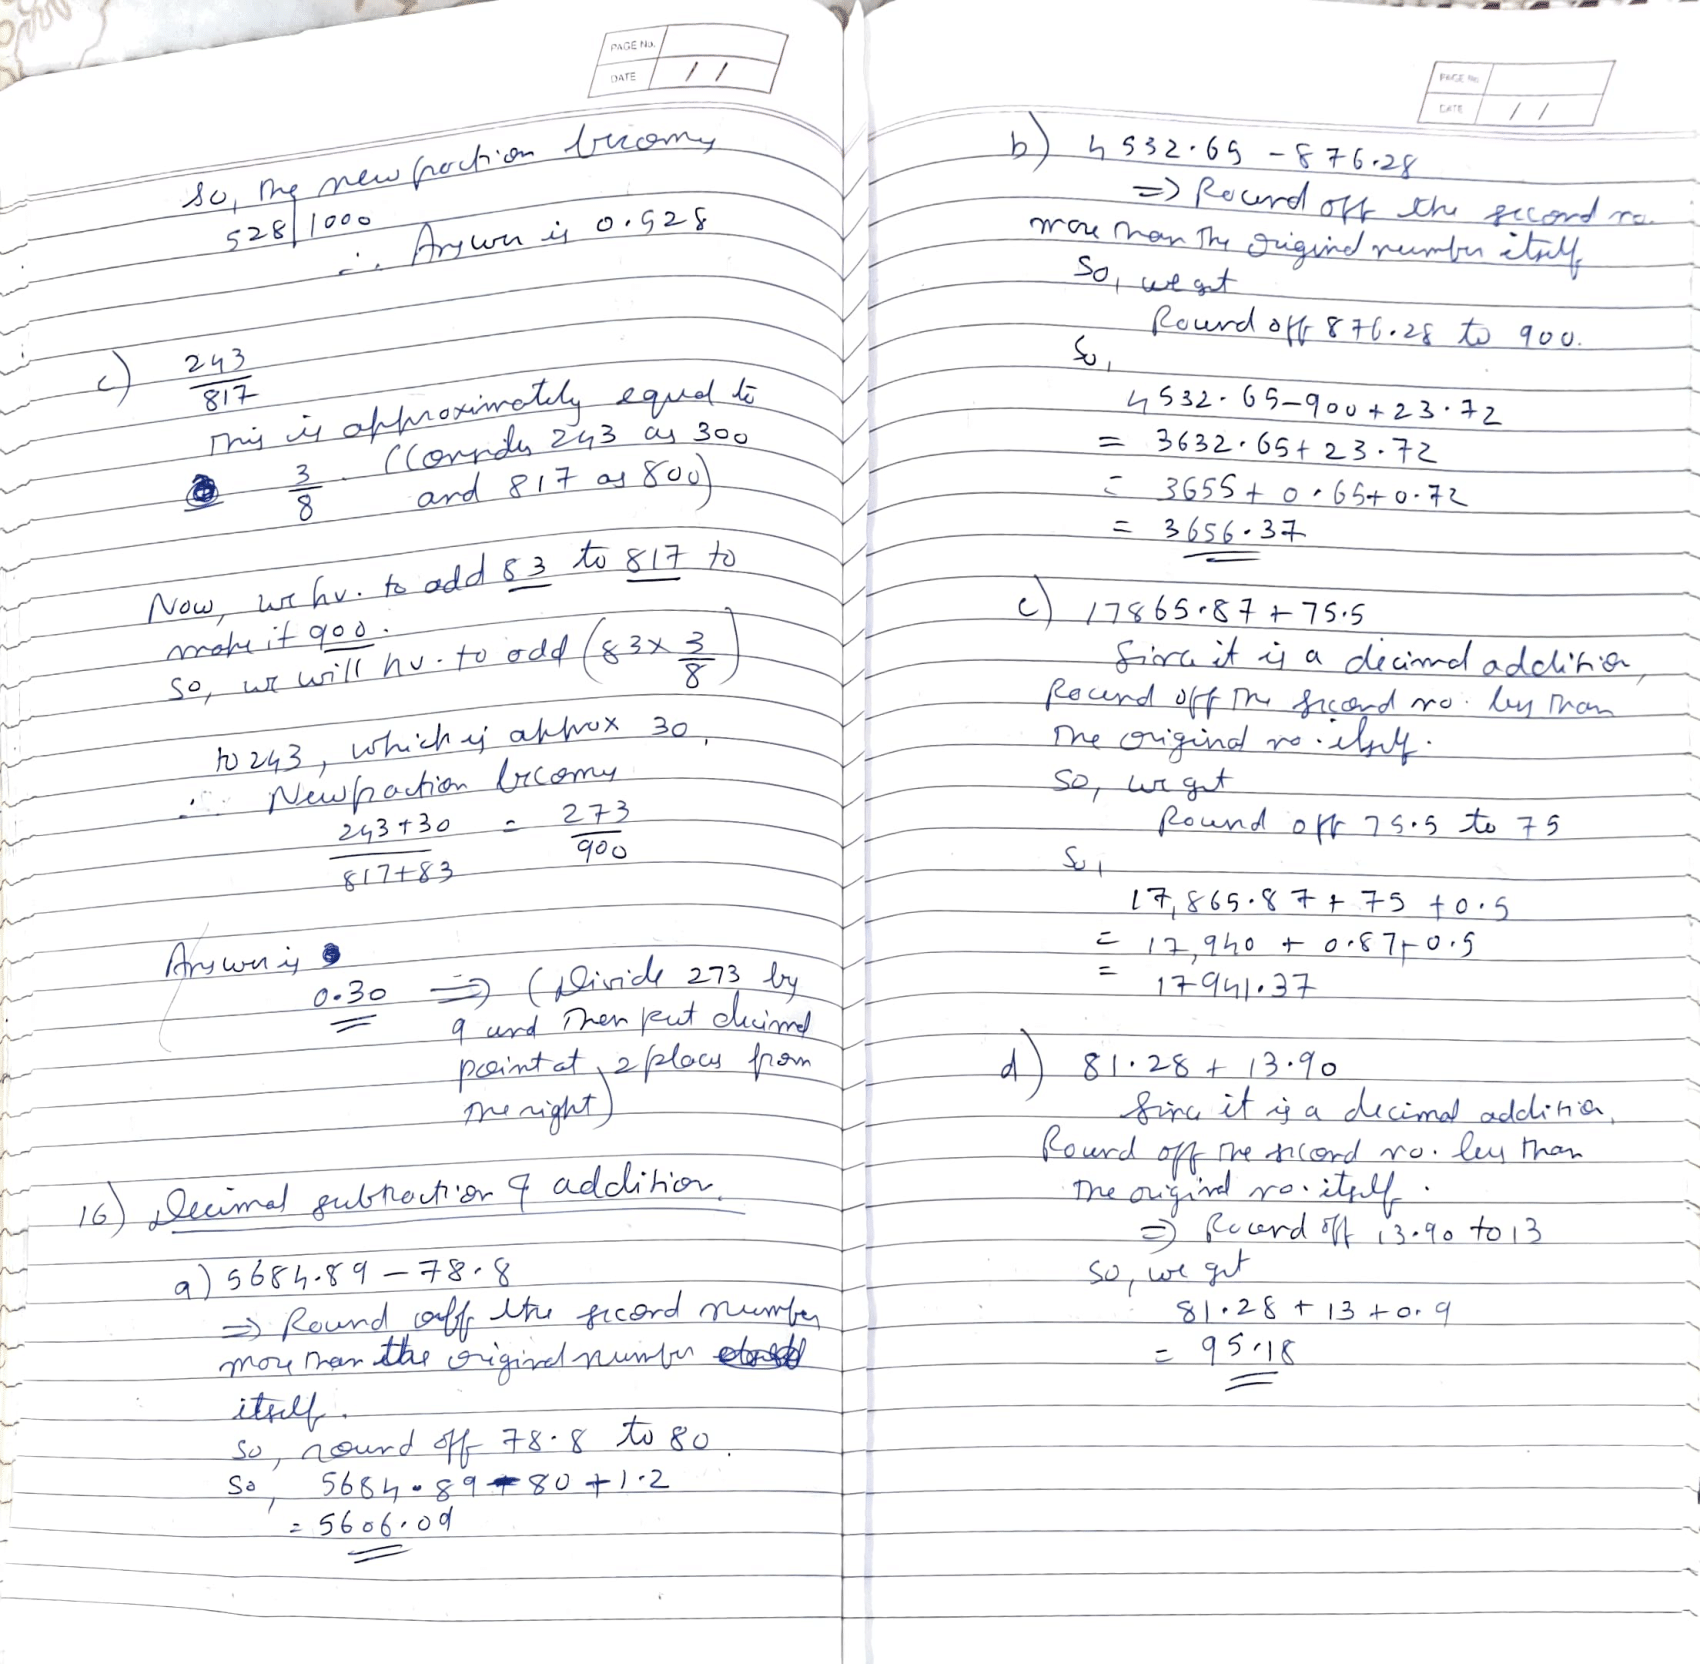 PAGE No.
DATE / /
So, the new fraction becomes
528/1000
∴ Answer is 0.528
c) 243
817
This is approximately equal to
3 (Consider 243 as 300
8 and 817 as 800)
Now, we hv. to add 83 to 817 to
make it 900.
So, we will hv. to add (83 x 3
8)
to 243, which is approx 30,
∴ New fraction becomes
243+30 = 273
817+83 900
Answer is
0.30 => (Divide 273 by
9 and then put decimal
point at 2 places from
the right)
16) Decimal subtraction & addition.
a) 5684.89 - 78.8
=> Round off the second number
more than the original number
itself.
So, round off 78.8 to 80.
So, 5684.89 - 80 + 1.2
= 5606.09
PAGE No.
DATE / /
b) 4532.65 - 876.28
=> Round off the second no.
more than the original number itself
So, we get
Round off 876.28 to 900.
So,
4532.65-900+23.72
= 3632.65+23.72
= 3655+0.65+0.72
= 3656.37
c) 17865.87 + 75.5
Since it is a decimal addition,
Round off the second no. less than
the original no. itself.
So, we get
Round off 75.5 to 75
So,
17,865.87 + 75 + 0.5
= 17,940 + 0.87+0.5
= 17941.37
d) 81.28 + 13.90
Since it is a decimal addition,
Round off the second no. less than
the original no. itself.
=> Round off 13.90 to 13
So, we get
81.28 + 13 + 0.9
= 95.18